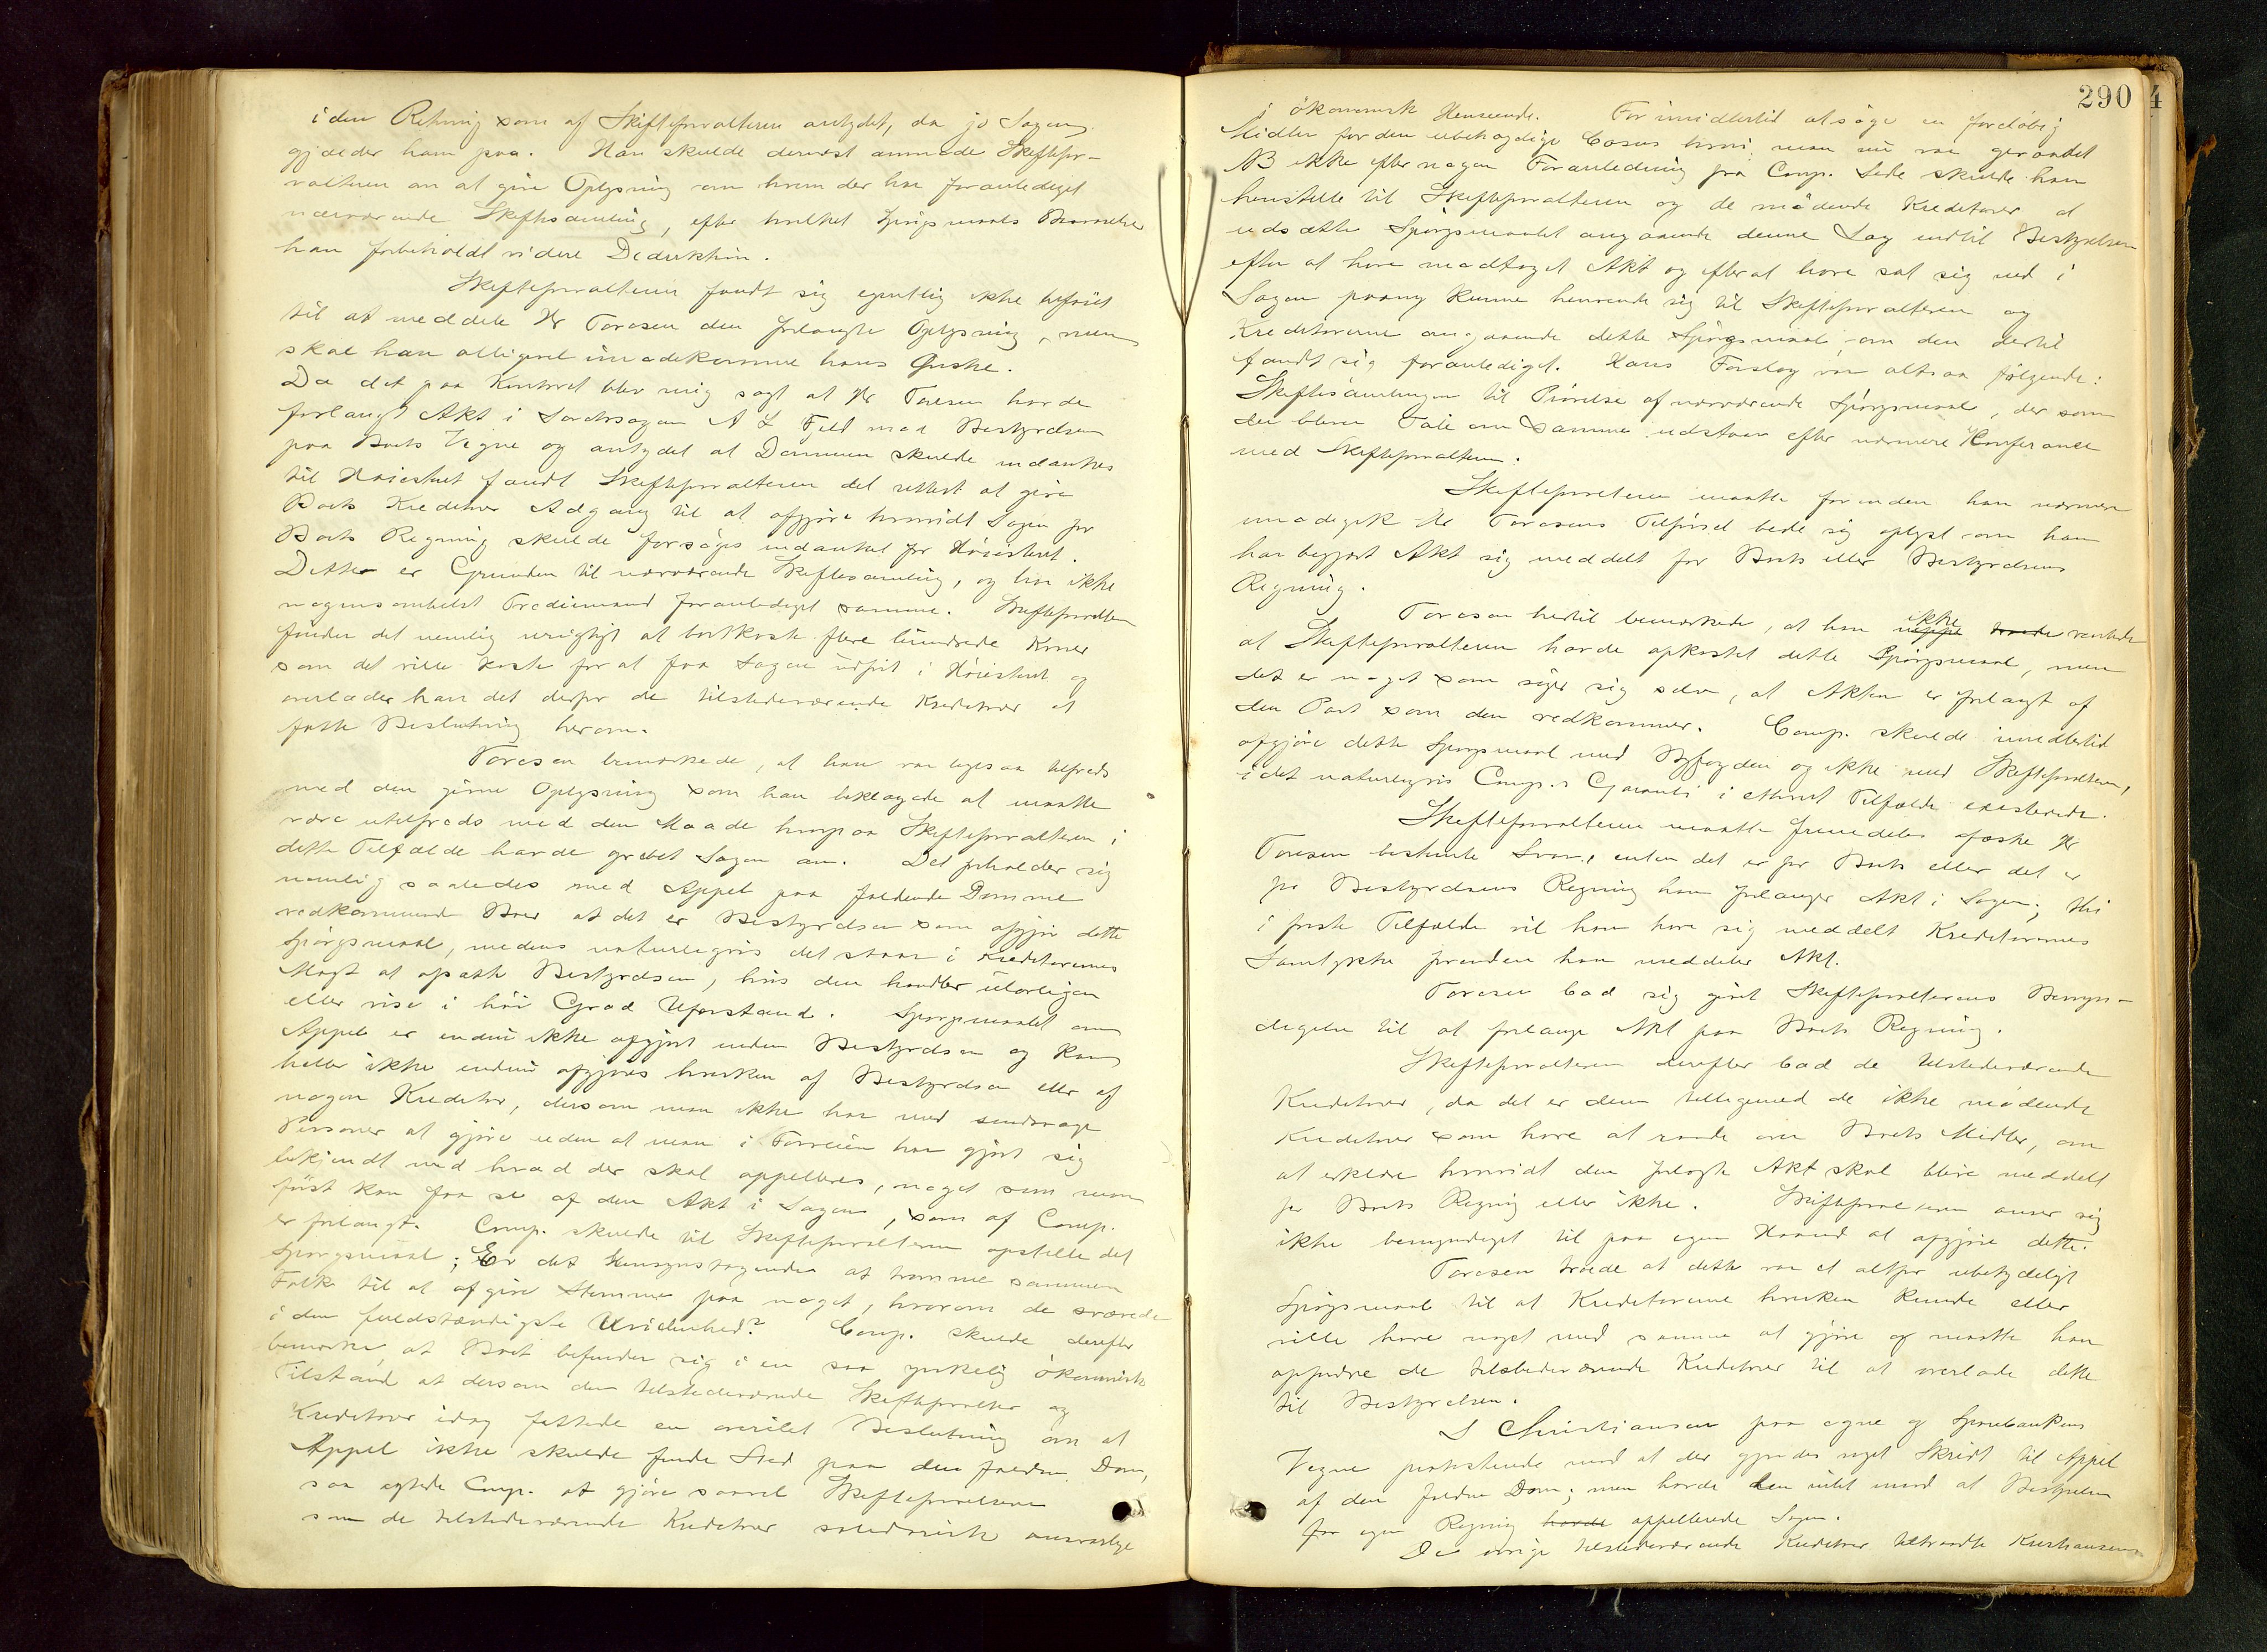 i den Retning som af Skifteforvalteren antydet, da jo Sagen
gjælder ham paa. Han skulde dernæst anmode Skiftefor-
valteren om at give Oplysning om hvem der har foranlediget
nærværende Skiftesamling, efter hvilket Spørgsmaals Besvarelse
han forbeholdt videre Deduktion.
Skifteforvalteren fandt sig egentlig ikke beføiet
til at meddele Hr Toresen den forlangte Oplysning, men
skal han alligevel imødekomme hans Ønske.
Da det paa Kontoret blev mig sagt at Hr Toresen havde
forlangt Akt i Sædvsagen A L Feld mod Bestyrelsen
paa Boets Vegne og antydet at Dommen skulde indankes
til Høiesteret fandt Skifteforvalteren det rettest at give
Boets Kreditorer Adgang til at afgjøre hvorvidt Sagen for
Boets Regning skulde forsøges indanket for Høiesteret.
Dette er Grunden til nærværende Skiftesamling, og har ikke
nogensomhelst Trediemand foranlediget samme. Skifteforvalteren
finder det nemlig urigtigt at bortkaste flere hundrede Kroner
som det ville koste for at faa Sagen udført i Høiesteret og
overlader han det derfor de tilstedeværende Kreditorer at
fatte Beslutning herom.
Toresen bemærkede, at han var ligesaa tilfreds
med den givne Oplysning som han beklagede at maatte
være utilfreds med den Maade hvorpaa Skifteforvalteren i
dette Tilfælde havde grebet Sagen an. Det forholder sig
nemlig saaledes med Appel paa faldende Domme
vedkommende Boer at det er Bestyrelsen som afgjør dette
Spørgsmaal, medens naturligvis det staar i Kreditorernes
Magt at afsætte Bestyrelsen, hvis den handler utilbørligen
eller viser i høi Grad Uforstand. Spørgsmaalet om
Appel er endnu ikke afgjort inden Bestyrelsen og kan
heller ikke endnu afgjøres hverken af Bestyrelsen eller af
nogen Kreditor, dersom man ikke har med sindssvage
Personer at gjøre uden at man i Forveien har gjort sig
bekjendt med hvad der skal appelleres, noget som man
først kan faa se af den Akt i Sagen, som af Comp.
er forlangt. Comp. skulde til Skifteforvalteren opstille det
Spørgsmaal; Er det Hensynstagende at tromme sammen
Folk til at afgive Stemme paa noget, hvorom de svæve
i den fuldstændigste Uvidenhed? Comp. skulde derefter
bemærke, at Boet befinder sig i en saa ynkelig økonomisk
Tilstand at dersom den tilstedeværende Skifteforvalter og
Kreditorer idag fattede en overilet Beslutning om at
Appel ikke skulde finde Sted paa den faldne Dom,
saa agtede Comp. at gjøre saavel Skifteforvalteren
som de tilstedeværende Kreditorer solidarisk ansvarlige
290
i økonomisk Henseende. For imidlertid at søge en foreløbig
Midler for den ubehagelige Casus hvori man nu var geraadet
NB ikke efter nogen Foranledning fra Comp. Side skulde han
henstille til Skifteforvalteren og de mødende Kreditorer at
udsætte Spørgsmaalet angaaende denne Sag indtil Bestyrelsen
efter at have modtaget Akt og efterat have sat sig ind i
Sagen paany kunne henvende sig til Skifteforvalteren og
Kreditorerne angaaende dette Spørgsmaal, om den dertil
fandt sig foranlediget. Hans Forslag var altsaa følgende:
Skiftesamlingen til Prøvelse af nærværende Spørgsmaal, der som
der bliver Tale om samme udstaar efter nærmere Konferance
med Skifteforvalteren.
Skifteforvalteren maatte forinden han nærmere
imødegik Hr Toresens Tilførsel bede sig oplyst om han
har begjært Akt sig meddelt for Boets eller Bestyrelsens
Regning.
Toresen hertil bemærkede, at han ikke ventede
at Skifteforvalteren havde opkastet dette Spørgsmaal, men
det er noget som siger sig selv, at Akten er forlangt af
den Part som den vedkommer. Comp. skulde imidlertid
afgjøre dette Spørgsmaal med Byfogden og ikke med Skifteforvalteren,
idet naturligvis Comp.s Garanti i ethvert Tilfælde existerede.
Skifteforvalteren maatte fremdeles afæske Hr
Toresen bestemte Svar, enten det er for Boets eller det er
for Bestyrelsens Regning han forlanger Akt i Sagen; thi
i første Tilfælde vil han have sig meddelt Kreditorernes
Samtykke forinden han meddeler Akt.
Toresen bad sig givet Skifteforvalterens Bemyn-
digelse til at forlange Akt paa Boets Regning.
Skifteforvalteren derefter bad de tilstedeværende
Kreditorer, da det er dem tilligemed de ikke mødende
Kreditorer som have at raade over Boets Midler, om
at erklære hvorvidt den forlangte Akt skal blive meddelt
for Boets Regning eller ikke. Skifteforvalteren anser sig
ikke bemyndiget til paa egen Haand at afgjøre dette.
Toresen troede at dette var et altfor ubetydeligt
Spørgsmaal til at Kreditorerne hverken kunde eller
ville have noget med samme at gjøre og maatte han
opfordre de tilstedeværende Kreditorer til at overlade dette
til Bestyrelsen.
S Christiansen paa egne og Sparebankens
Vegne protesterede mod at der gjordes noget Skridt til Appel
af den faldne Dom; men havde den intet imod at Bestyrelsen
for egen Regning havde appellerede Sagen.
De øvrige tilstedeværende Kreditorer tiltraadte Kristiansens